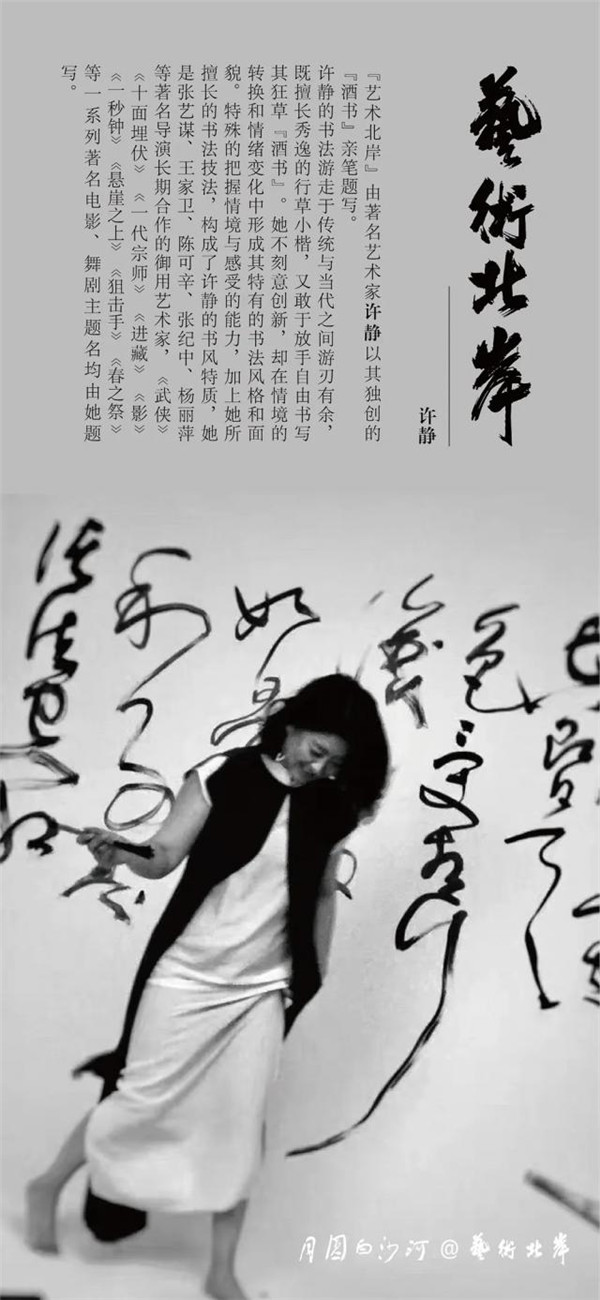 藝術北岸
许静
『艺术北岸』由著名艺术家许静以其独创的
『酒书』亲笔题写。
许静的书法游走于传统与当代之间游刃有余，
既擅长秀逸的行草小楷，又敢于放手自由书写
其狂草『酒书』。她不刻意创新，却在情境的
转换和情绪变化中形成其特有的书法风格和面
貌。特殊的把握情境与感受的能力，加上她所
擅长的书法技法，构成了许静的书风特质，她
是张艺谋、王家卫、陈可辛、张纪中、杨丽萍
等著名导演长期合作的御用艺术家，《武侠》
《十面埋伏》《一代宗师》《进藏》《影》
《一秒钟》《悬崖之上》《狙击手》《春之祭》
等一系列著名电影、舞剧主题名均由她题
写。
月圆白沙河@藝術北岸